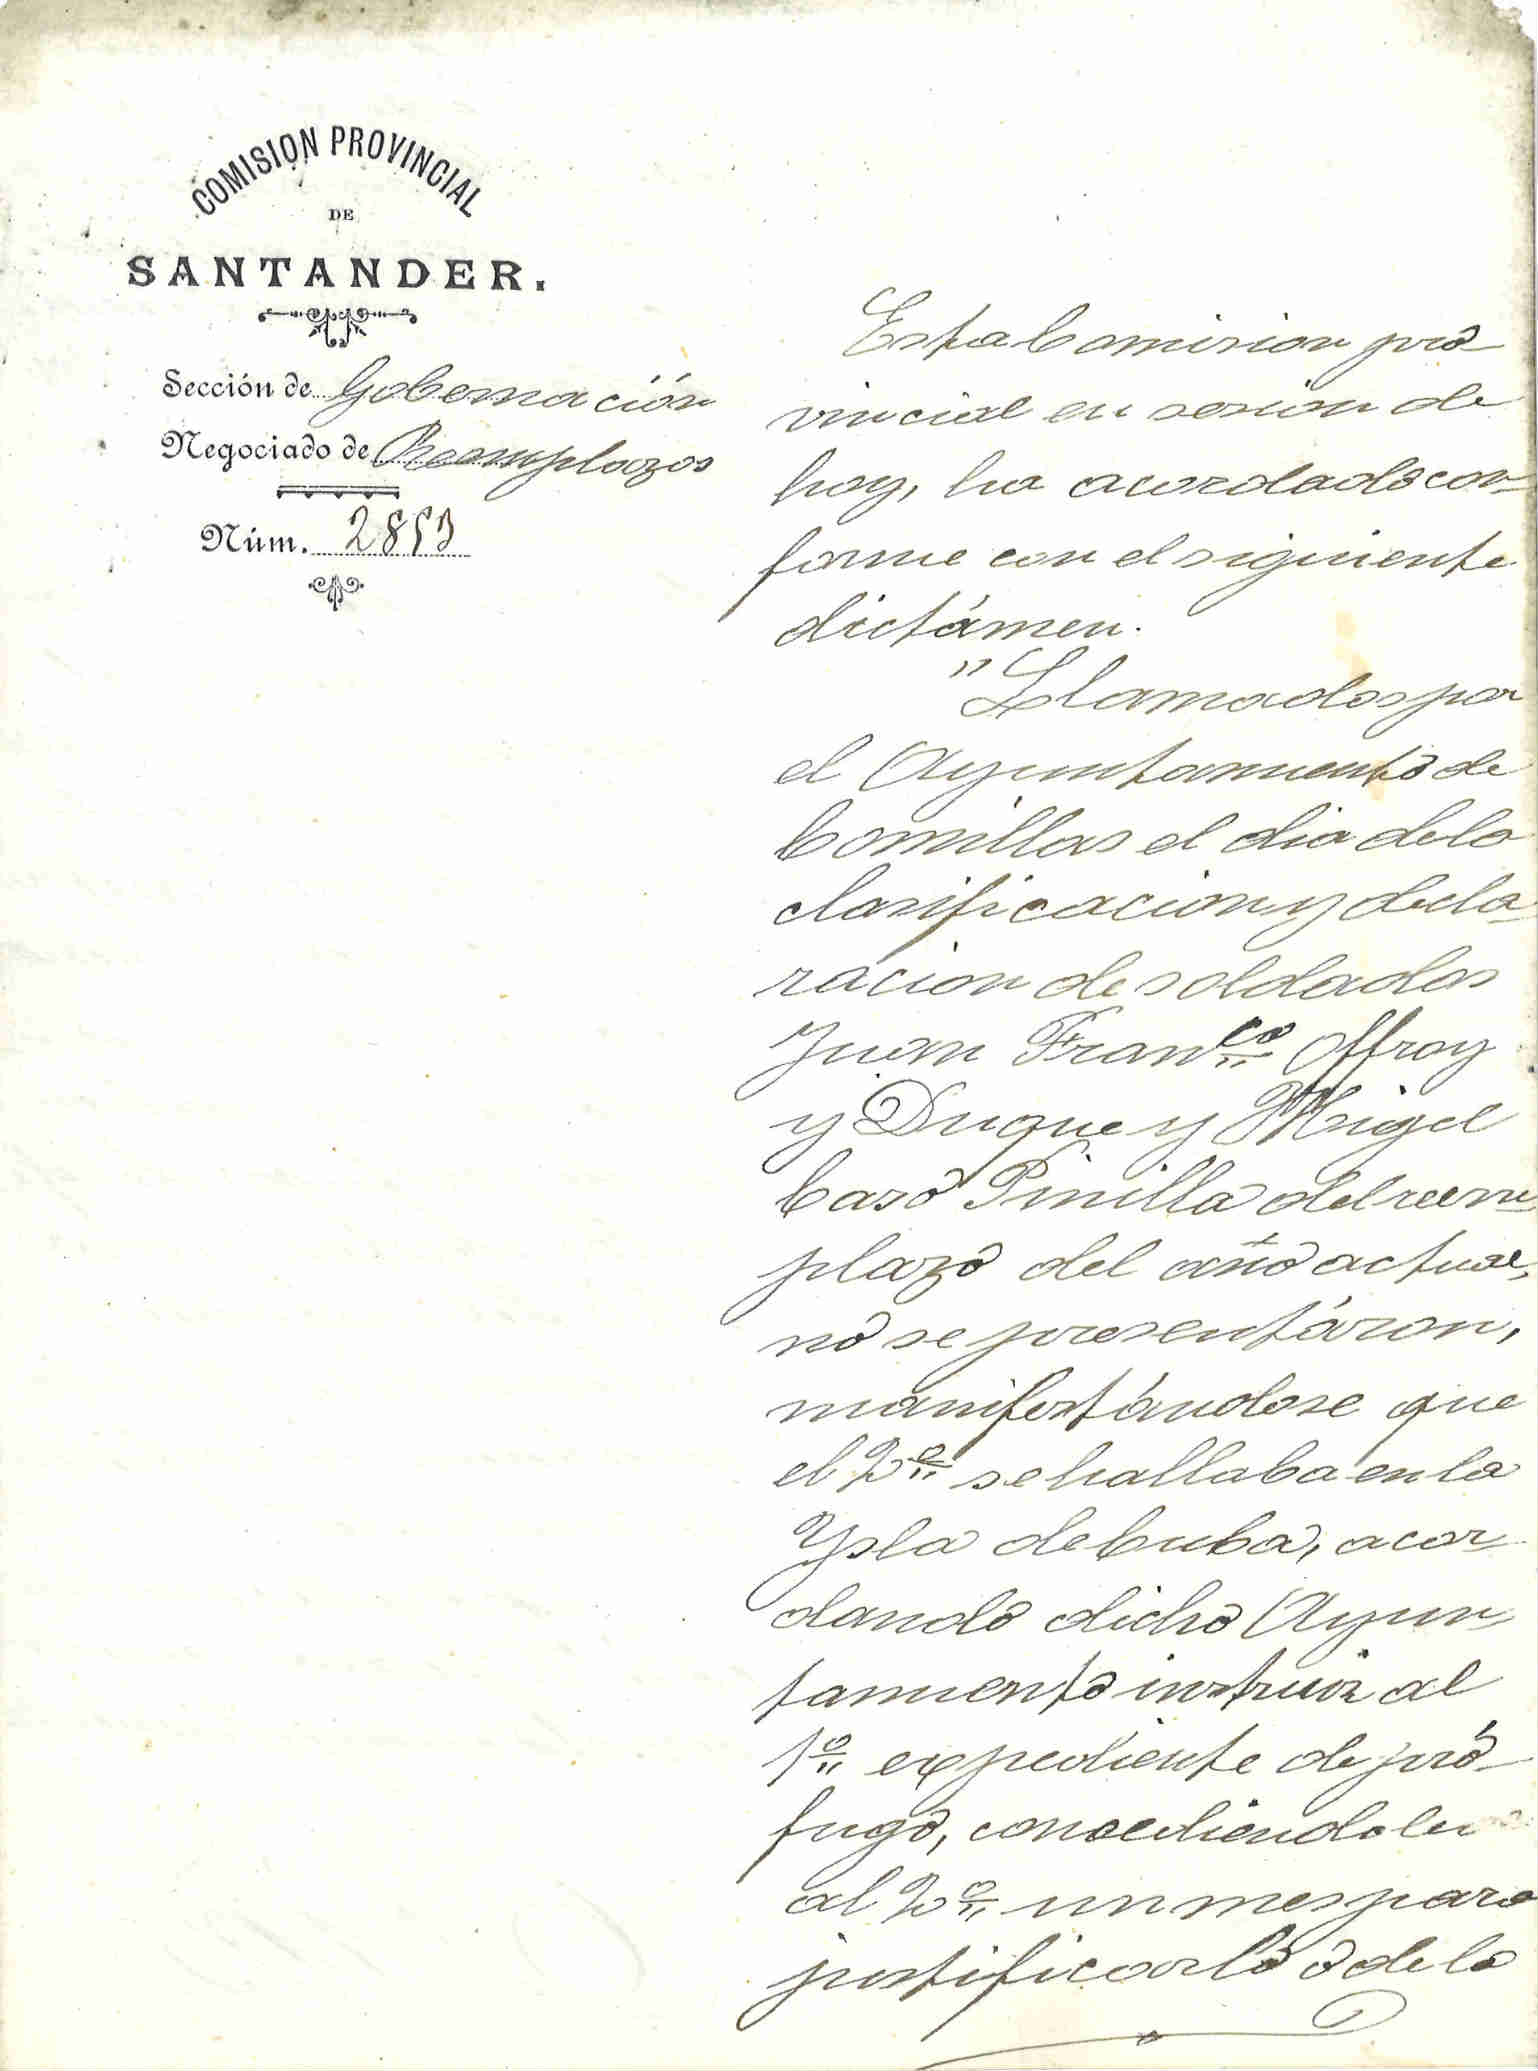 COMISION PROVINCIAL
DE
SANTANDER.
Sección de Gobernación
Negociado de Reemplazos
Núm. 2853
Esta Comision pro
vincial en sesion de
hoy, ha acordado con-
forme con el siguiente
dictámen.
"Llamados por
el Ayuntamiento de
Comillas el dia de la
clasificacion y decla-
racion de soldados
Juan Franco
y Duque y Miguel
Caso Pinilla del reem-
plazo del año actual,
no se presentáron,
manifestándose que
el 2º se hallaba en la
Ysla de Cuba, acor-
dando dicho Ayun-
tamiento instruir al
1º expediente de pró-
fugo, concediendole
al 2º un mes para
justificarlo ó de lo